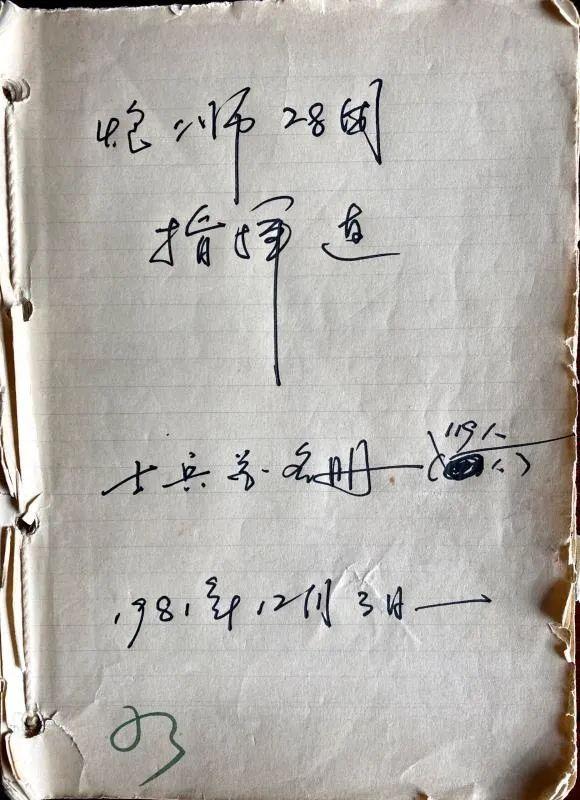 炮八师28团
指挥连
士兵花名册—(119人)
1981年12月3日—